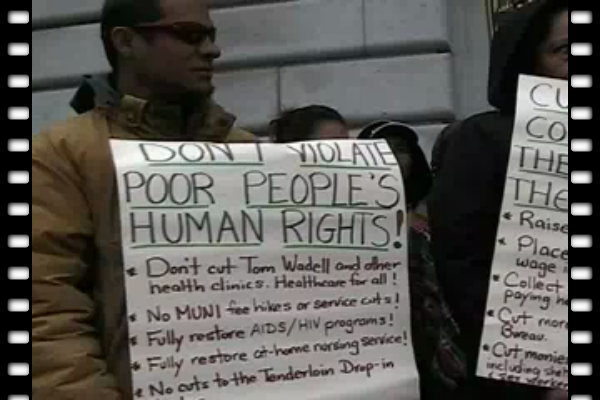 DON'T VIOLATE
POOR PEOPLE'S
HUMAN RIGHTS!
* Don't cut Tom Wadell and other
health clinics. Healthcare for all!
* No MUNI fee hikes or service cuts!
* Fully restore AIDS/HIV programs!
* Fully restore at-home nursing service!
* No cuts to the Tenderloin Drop-in
CU
CO
THE
THE
* Raise
* Place
wage
* Collect
paying
* Cut mor
Bureau.
* Cut monies
including she